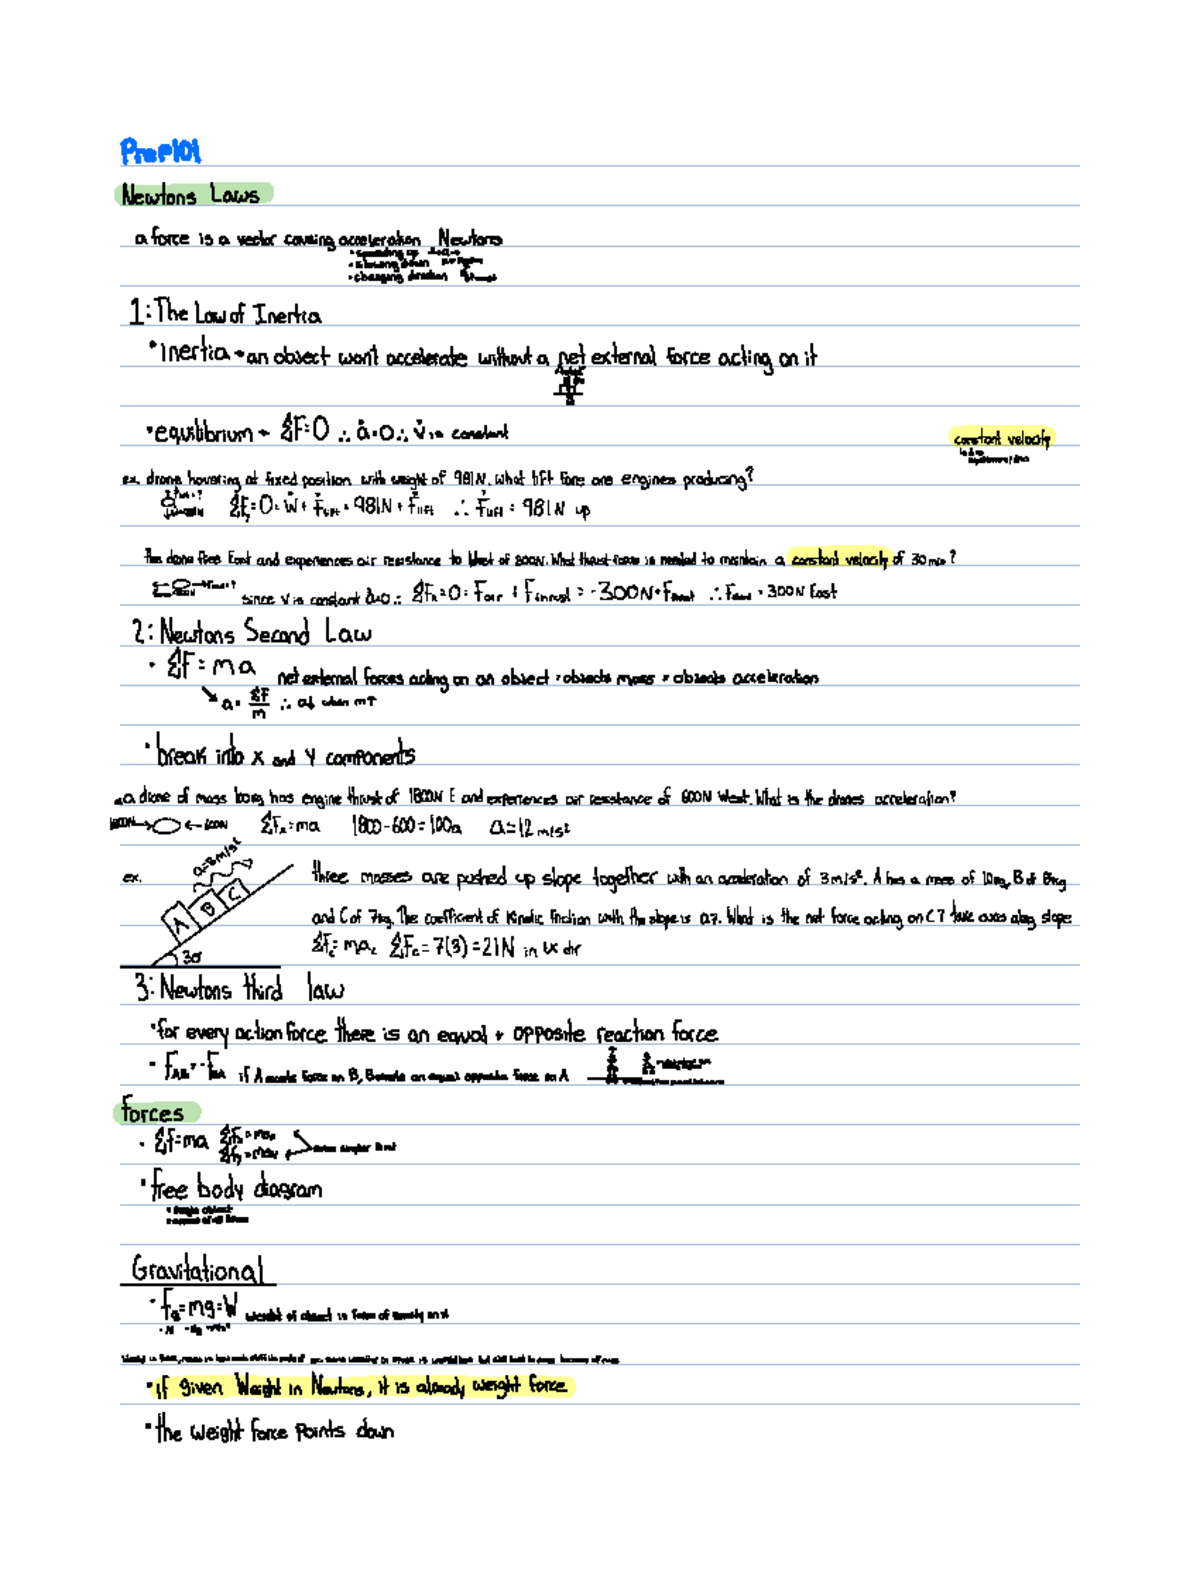 Prep101
Newtons Laws
a force is a vector causing acceleration Newtons
• speeding up
• slowing down
• changing direction
1: The Law of Inertia
• inertia - an object won't accelerate without a net external force acting on it
• equilibrium - ΣF=0 ∴ a=0 ∴ v is constant
constant velocity
ex. drone hovering at fixed position with weight of 981N. What lift force are engines producing?
ΣFy=0=W+Flift=-981N+Flift ∴ Flift=981N up
the drone flies East and experiences air resistance to West of 300N. What thrust force is needed to maintain a constant velocity of 30m/s?
since v is constant a=0 ∴ ΣFx=0=Fair+Fthrust=-300N+Fthrust ∴ Fthrust=300N East
2: Newtons Second Law
• ΣF=ma net external forces acting on an object = objects mass × objects acceleration
a=ΣF/m ∴ a↓ when m↑
• break into x and y components
a drone of mass 100kg has engine thrust of 1800N E and experiences air resistance of 600N West. What is the drones acceleration?
1800N → ← 600N ΣFx=ma 1800-600=100a a=12m/s²
a=3m/s²
ex. three masses are pushed up slope together with an acceleration of 3m/s². A has a mass of 10kg, B of 8kg
A B C
and C of 7kg. The coefficient of Kinetic friction with the slope is 0.7. What is the net force acting on C? take axis along slope
30° ΣFc=mac ΣFc=7(3)=21N in ux dir
3: Newtons third law
• for every action force there is an equal + opposite reaction force
• FAB=-FBA if A exerts force on B, B exerts an equal opposite force on A
forces
• ΣF=ma ΣFx=max
ΣFy=may
• free body diagram
• single object
Gravitational
• Fg=mg=W weight of object is force of gravity on it
• if given Weight in Newtons, it is already weight force
• the weight force points down